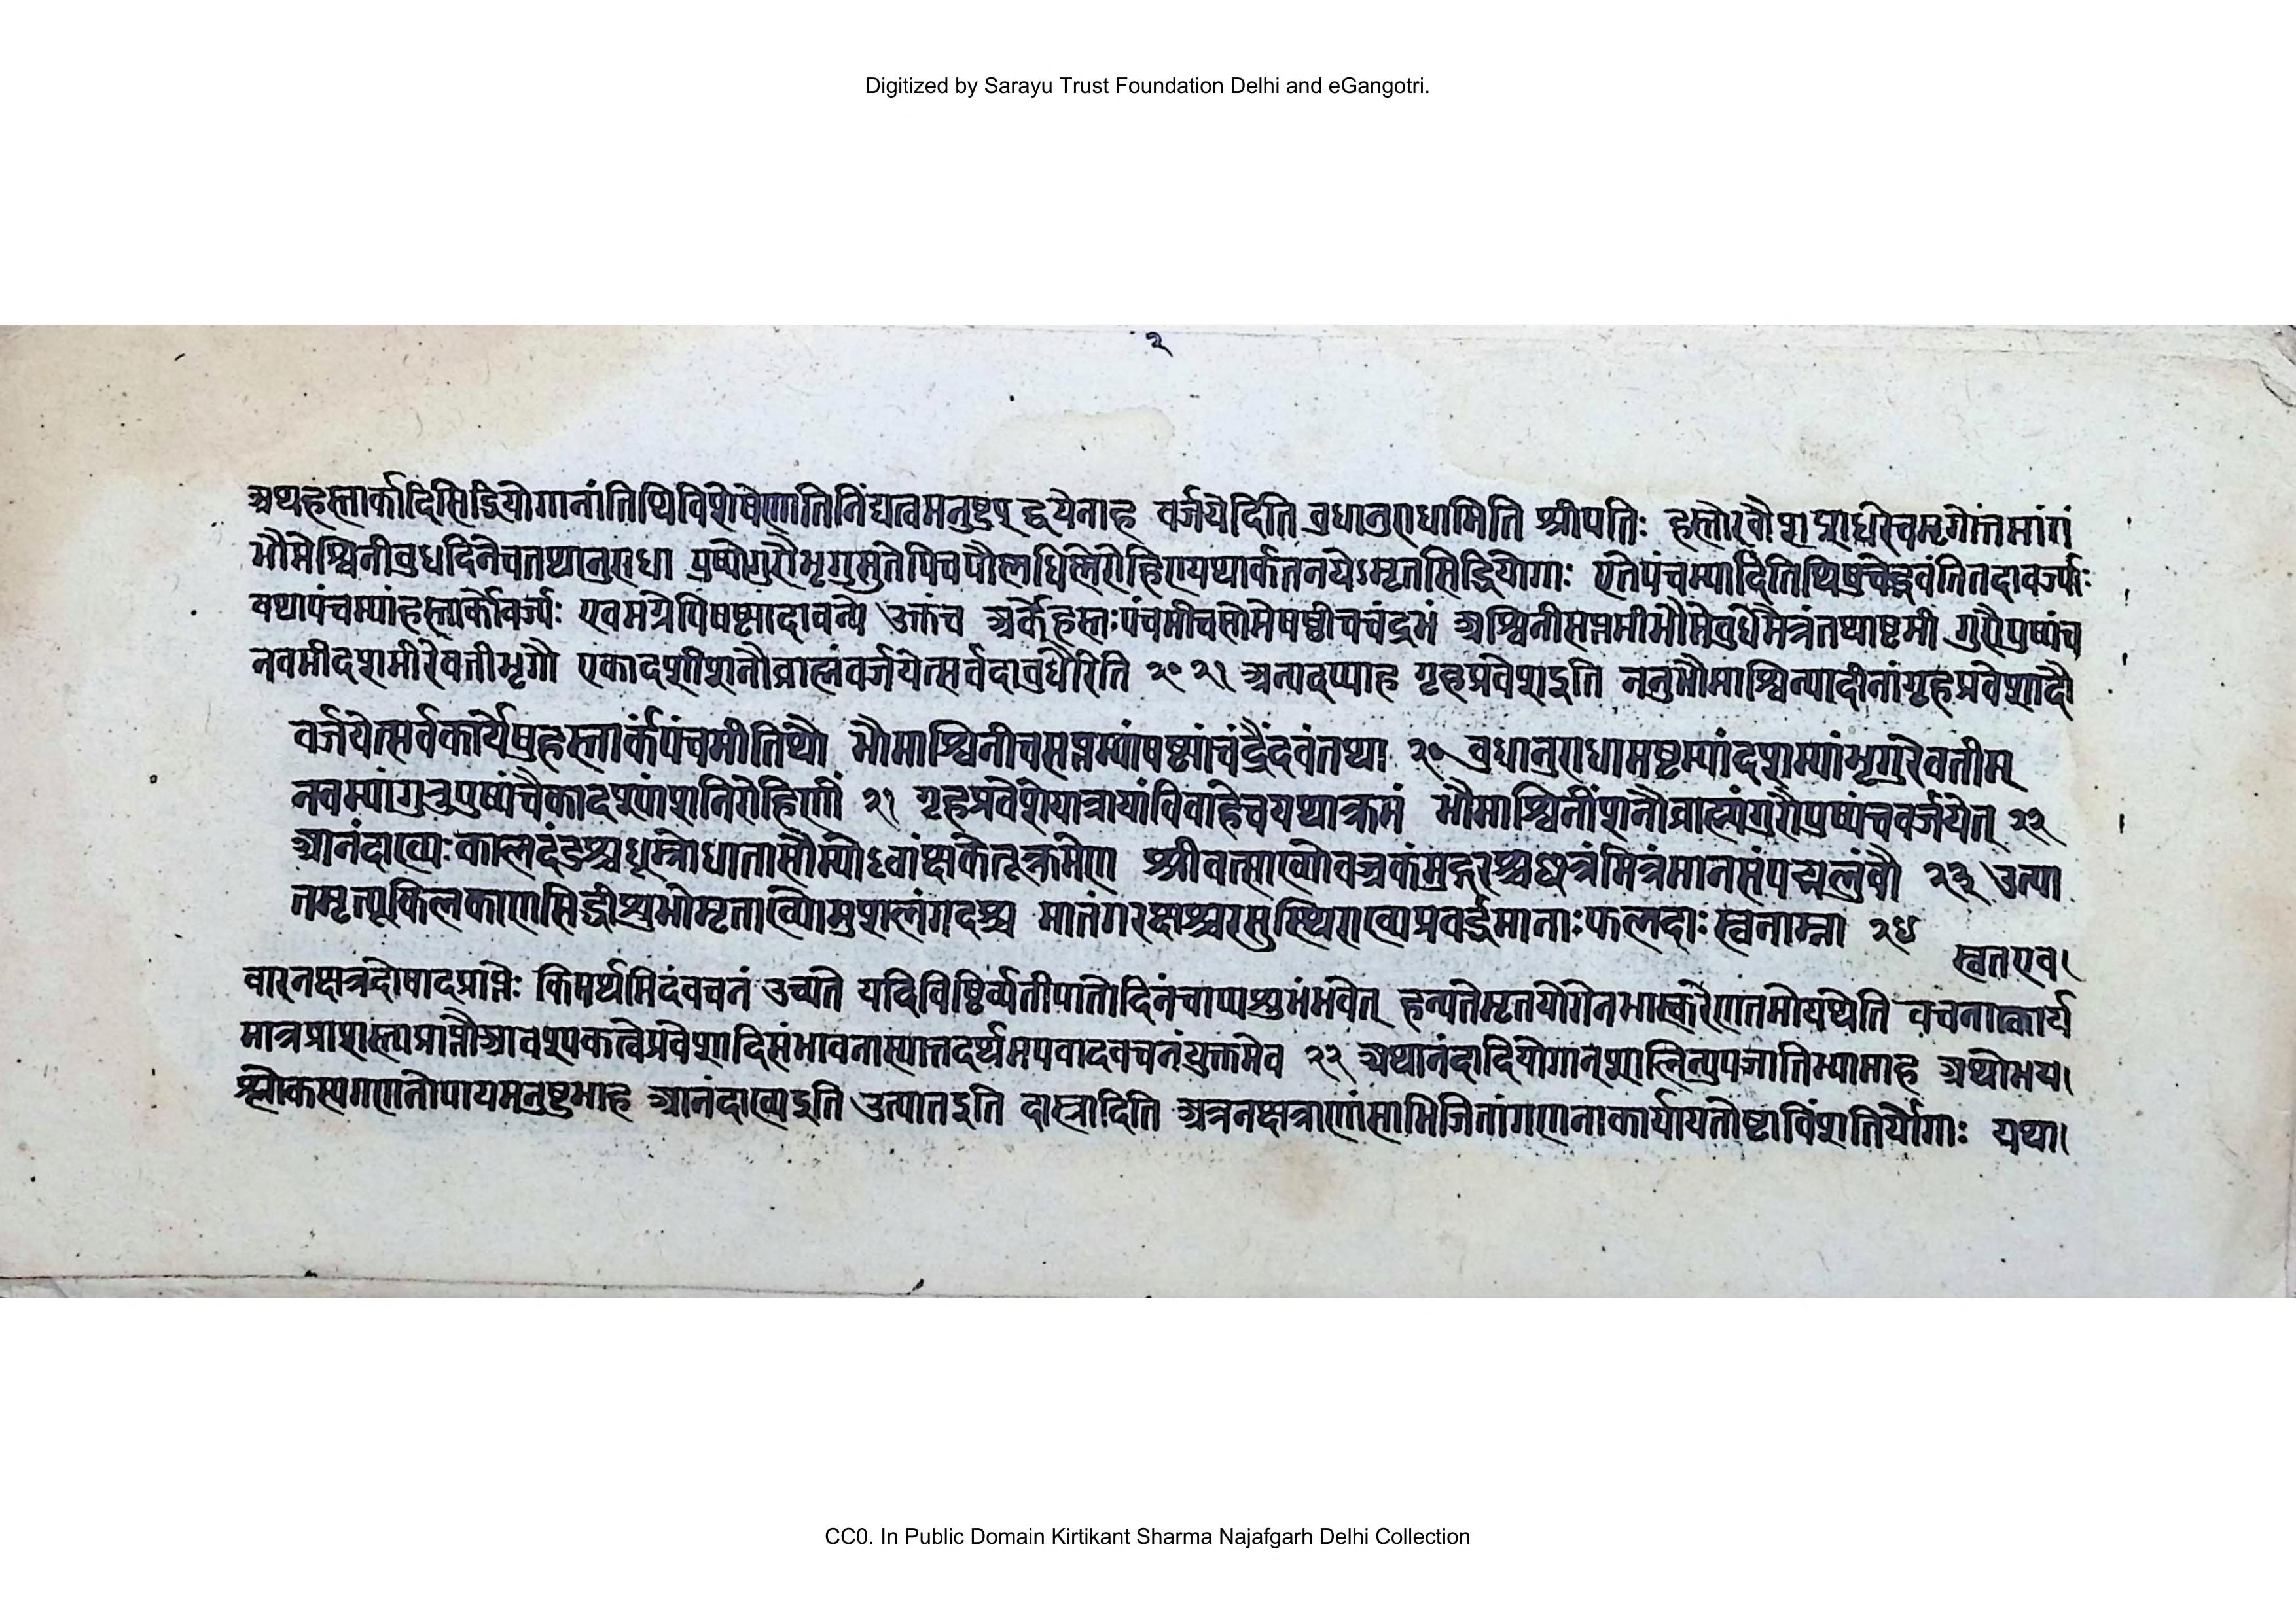 Digitized by Sarayu Trust Foundation Delhi and eGangotri.
२
अथहस्तार्कादिसिद्धियोगानांतिथिविशेषेणातिनिंद्यत्वमनुष्टुप् द्वयेनाह वर्जयेदिति वुधानुराधामिति श्रीपतिः हस्तोरवौ
भौमेश्विनीवुधदिनेचतथानुराधा पुष्योगुरौभृगुसुतेपिचपौस्नधिस्नेरोहिण्यथार्कतनयेऽमृतसिद्धियोगाः एतेपंचम्यादितिथिषुचेद्भवंतितदावर्ज्याः
यथापंचम्यांहस्तार्कोवर्ज्यः एवमग्रेपिषष्ट्यादावन्ये उक्तंच अर्केहस्तःपंचमीचसोमेषष्ठीचचंद्रभं अश्विनीसप्तमीभौमेवुधेमैत्रंतथाष्टमी गुरौपुष्यंच
नवमीदशमीरेवतीभृगौ एकादशीशनौब्राह्मंवर्जयेत्सर्वदावुधैरिति २० २१ अन्यदप्याह गृहप्रवेशइति ननुभौमाश्विन्यादीनांगृहप्रवेशादौ
वर्जयेत्सर्वकार्येषुहस्तार्कंपंचमीतिथौ भौमाश्विनीचसप्तम्यांषष्ट्यांचंद्रैंदवंतथा २० वुधानुराधामष्टम्यांदशम्यांभृगुरेवतीम्
नवम्यांगुरुपुष्यंचैकादश्यांशनिरोहिणीं २१ गृहप्रवेशेयात्रायांविवाहेचयथाक्रमं भौमाश्विनींशनौब्राह्म्यंगुरौपुष्यंचवर्जयेत् २२
आनंदाख्यःकालदंडश्चधूम्रोधातासौम्योध्वांक्षकेतूक्रमेण श्रीवत्साख्योवज्रकंमुद्गरश्चछत्रंमित्रंमानसंपद्मलुंवौ २३ उत्पा
तमृत्यूकिलकाणसिद्धीशुभोमृताख्योमुशलंगदश्च मातंगरक्षश्चरसुस्थिराख्यप्रवर्द्धमानाःफलदाः स्वनाम्ना २४
स्वतएव।
वारनक्षत्रदोषादप्राप्तेः किमर्थमिदंवचनं उच्यते यदिविष्टिर्व्यतीपातोदिनंचाप्यशुभंभवेत् हन्यतेमृतयोगेनभास्करेणतमोयथेति वचनात्कार्य
मात्रप्राशस्त्यप्राप्तौआवश्यकत्वेप्रवेशादिसंभावनास्यात्तदर्थमपवादवचनंयुक्तमेव २२ अथानंदादियोगान्शालिन्युपजातिभ्यामाह अथोभय।
श्लोकस्यगणनोपायमनुष्टुभाह आनंदाख्यइति उत्पातइति दास्रादिति अत्रनक्षत्राणांसाभिजितांगणनाकार्यायतोष्टाविंशतिर्योगाः यथा।
CC0. In Public Domain Kirtikant Sharma Najafgarh Delhi Collection